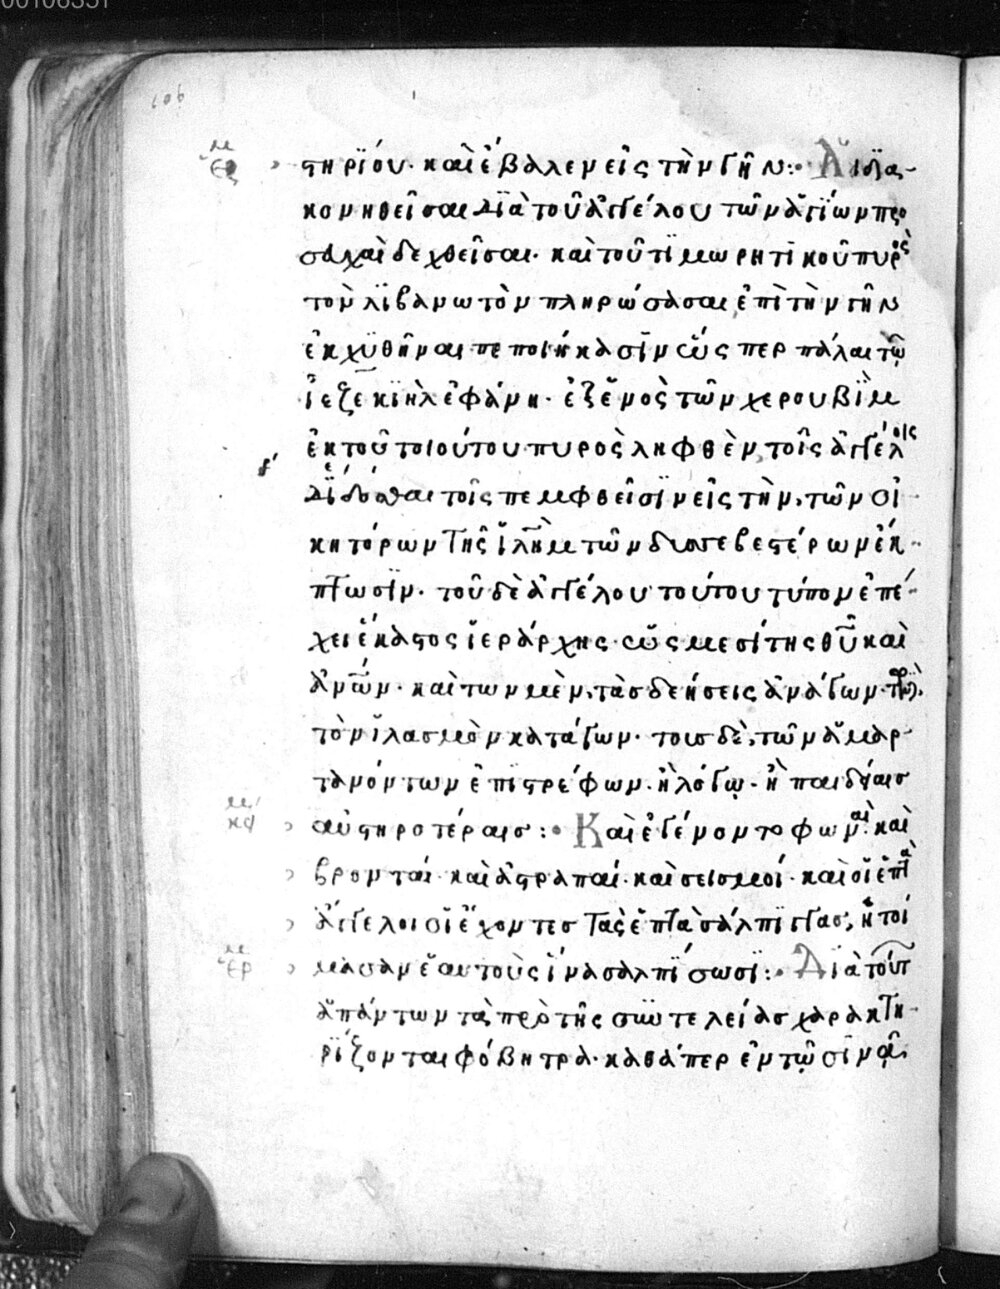 00106351
106
κείμενον
ἑρ
στηρίου· καὶ ἔβαλεν εἰς τὴν γῆν:· Αἱ δϊα
κονηθεῖσαι δϊὰ τοῦ ἀγγέλου τῶν ἁγΐων προ
σευχαὶ δεχθεῖσαι· καὶ τοῦ τϊμωρητϊκοῦ πυρὸς
τὸν λϊβανωτὸν πληρώσασαι ἐπὶ τὴν γῆν
ἐκχϋθῆναι πεποιήκασϊν ὥσπερ πάλαι τῷ
ἰεζεκϊὴλ ἐφάνη· ἐξ ἑνὸς τῶν χερουβϊμ
ἐκ τοῦ τοιούτου πυρὸς ληφθὲν, τοῖς ἀγγέλοις
δϊδοσθαι τοῖς πεμφθεῖσϊν εἰς τὴν, τῶν οἰ
κητόρων τῆς ἱλὴμ τῶν δυσσεβεστέρων ἐκ
πτωσϊν· τοῦ δὲ ἀγγέλου τούτου τύπον ἐπέ
χει ἕκαστος ἱεράρχης· ὡς μεσίτης θῦ καὶ
ἀνῶν· καὶ τῶν μὲν, τὰς δεήσεις ἀνάγων·
τὸν ἱλασμὸν κατάγων· τοὺς δὲ, τῶν ἁμαρ
τανόντων ἐπιστρέφων· ἢ λόγῳ· ἢ παιδείαις
αὐστηροτέραις:· Καὶ ἐγένοντο φωναὶ· καὶ
βρονταί· καὶ ἀστραπαί· καὶ σεισμοί· καὶ οἱ ἑπτὰ
ἄγγελοι οἱ ἔχοντες τὰς ἑπτὰ σάλπϊγγας, ἡτοί
μασαν ἑαυτοὺς ἵνα σαλπΐσωσϊ:· Δϊὰ τούτ
ἁπάντων τὰ πρὸ τῆς συντελείας χαρακτη
ρϊζονται φόβητρα· καθάπερ ἐν τῷ σϊνᾷ